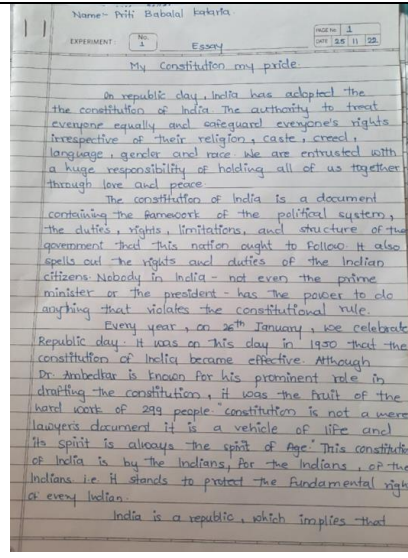 Name- Priti Babalal Kataria
EXPERIMENT: No. 1 Essay PAGE No 1
DATE 25 11 22
My Constitution my pride.
On republic day, India has adopted the
the constitution of India. The authority to treat
everyone equally and safeguard everyone's rights
irrespective of their religion, caste, creed,
language, gender and race. We are entrusted with
a huge responsibility of holding all of us together
through love and peace.
The constitution of India is a document
containing the famework of the political system,
the duties, rights, limitations, and structure of the
government that this nation ought to follow. It also
spells out the rights and duties of the Indian
citizens. Nobody in India - not even the prime
minister or the president - has the power to do
anything that violates the constitutional rule.
Every year, on 26th January, we celebrate
Republic day. It was on this day in 1950 that the
constitution of India became effective. Although
Dr. Ambedkar is known for his prominent role in
drafting the constitution, it was the fruit of the
hard work of 299 people "constitution is not a mere
lawyer's document it is a vehicle of life and
its spirit is always the spirit of Age." This constitutio
of India is by the Indians, for the Indians, of the
Indians i.e. it stands to protect the fundamental righ
of every Indian.
India is a republic, which implies that